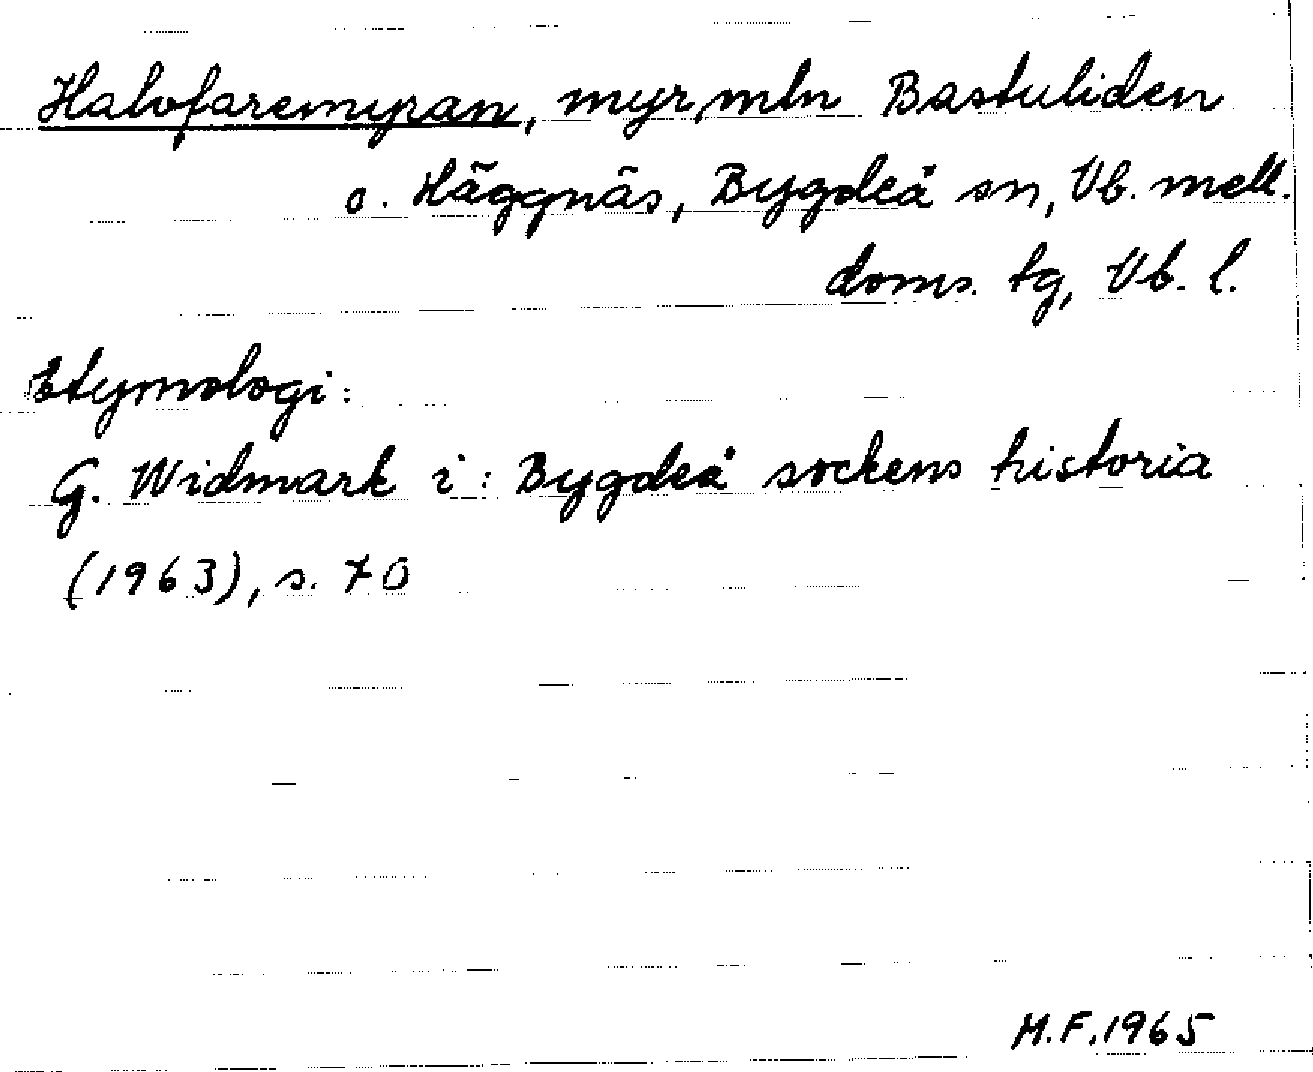 Halvfaremyran, myr, mln Bastuliden
o. Häggnäs, Bygdeå sn, Vb. mell.
doms. tg, Vb. l.
Etymologi:
G. Widmark i: Bygdeå sockens historia
(1963), s. 70
M.F. 1965